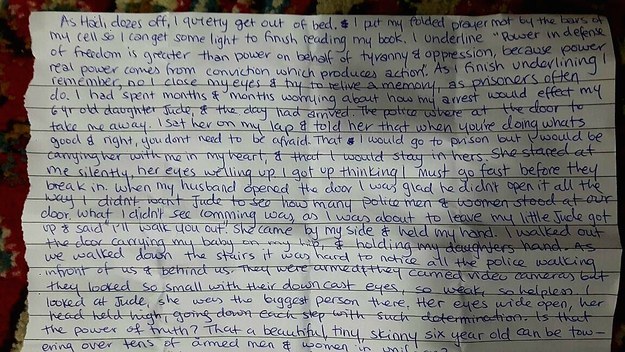 As Hadi dozes off, I quietly get out of bed. & I put my folded prayer mat by the bars of
my cell so I can get some light to finish reading my book. I underline "Power in defense
of freedom is greater than power on behalf of tyranny & oppression, because power
real power comes from conviction which produces action". As I finish underlining I
remember, no I close my eyes & try to relive a memory, as prisoners often
do. I had spent months & months worrying about how my arrest would effect my
6 yr old daughter Jude, & the day had arrived. The police where at the door to
take me away. I sat her on my lap & told her that when you're doing whats
good & right, you dont need to be afraid. That I would go to prison but I would be
carrying her with me in my heart, & that I would stay in hers. She stared at
me silently, her eyes welling up I got up thinking I must go fast before they
break in. When my husband opened the door I was glad he didnt open it all the
way I didn't want Jude to see how many police men & women stood at our
door. What I didn't see comming was, as I was about to leave my little Jude got
up & said "I'll walk you out". She came by my side & held my hand. I walked out
the door carrying my baby on my hip, & holding my daughters hand. As
we walked down the stairs it was hard to notice all the police walking
infront of us & behind us. They were armed, they carried video cameras but
they looked so small with their down cast eyes, so weak, so helpless. I
looked at Jude, she was the biggest person there. Her eyes wide open, her
head held high, going down each step with such determination. Is that
the power of truth? That a beautiful, tiny, skinny six year old can be tow-
ering over tens of armed men & women in